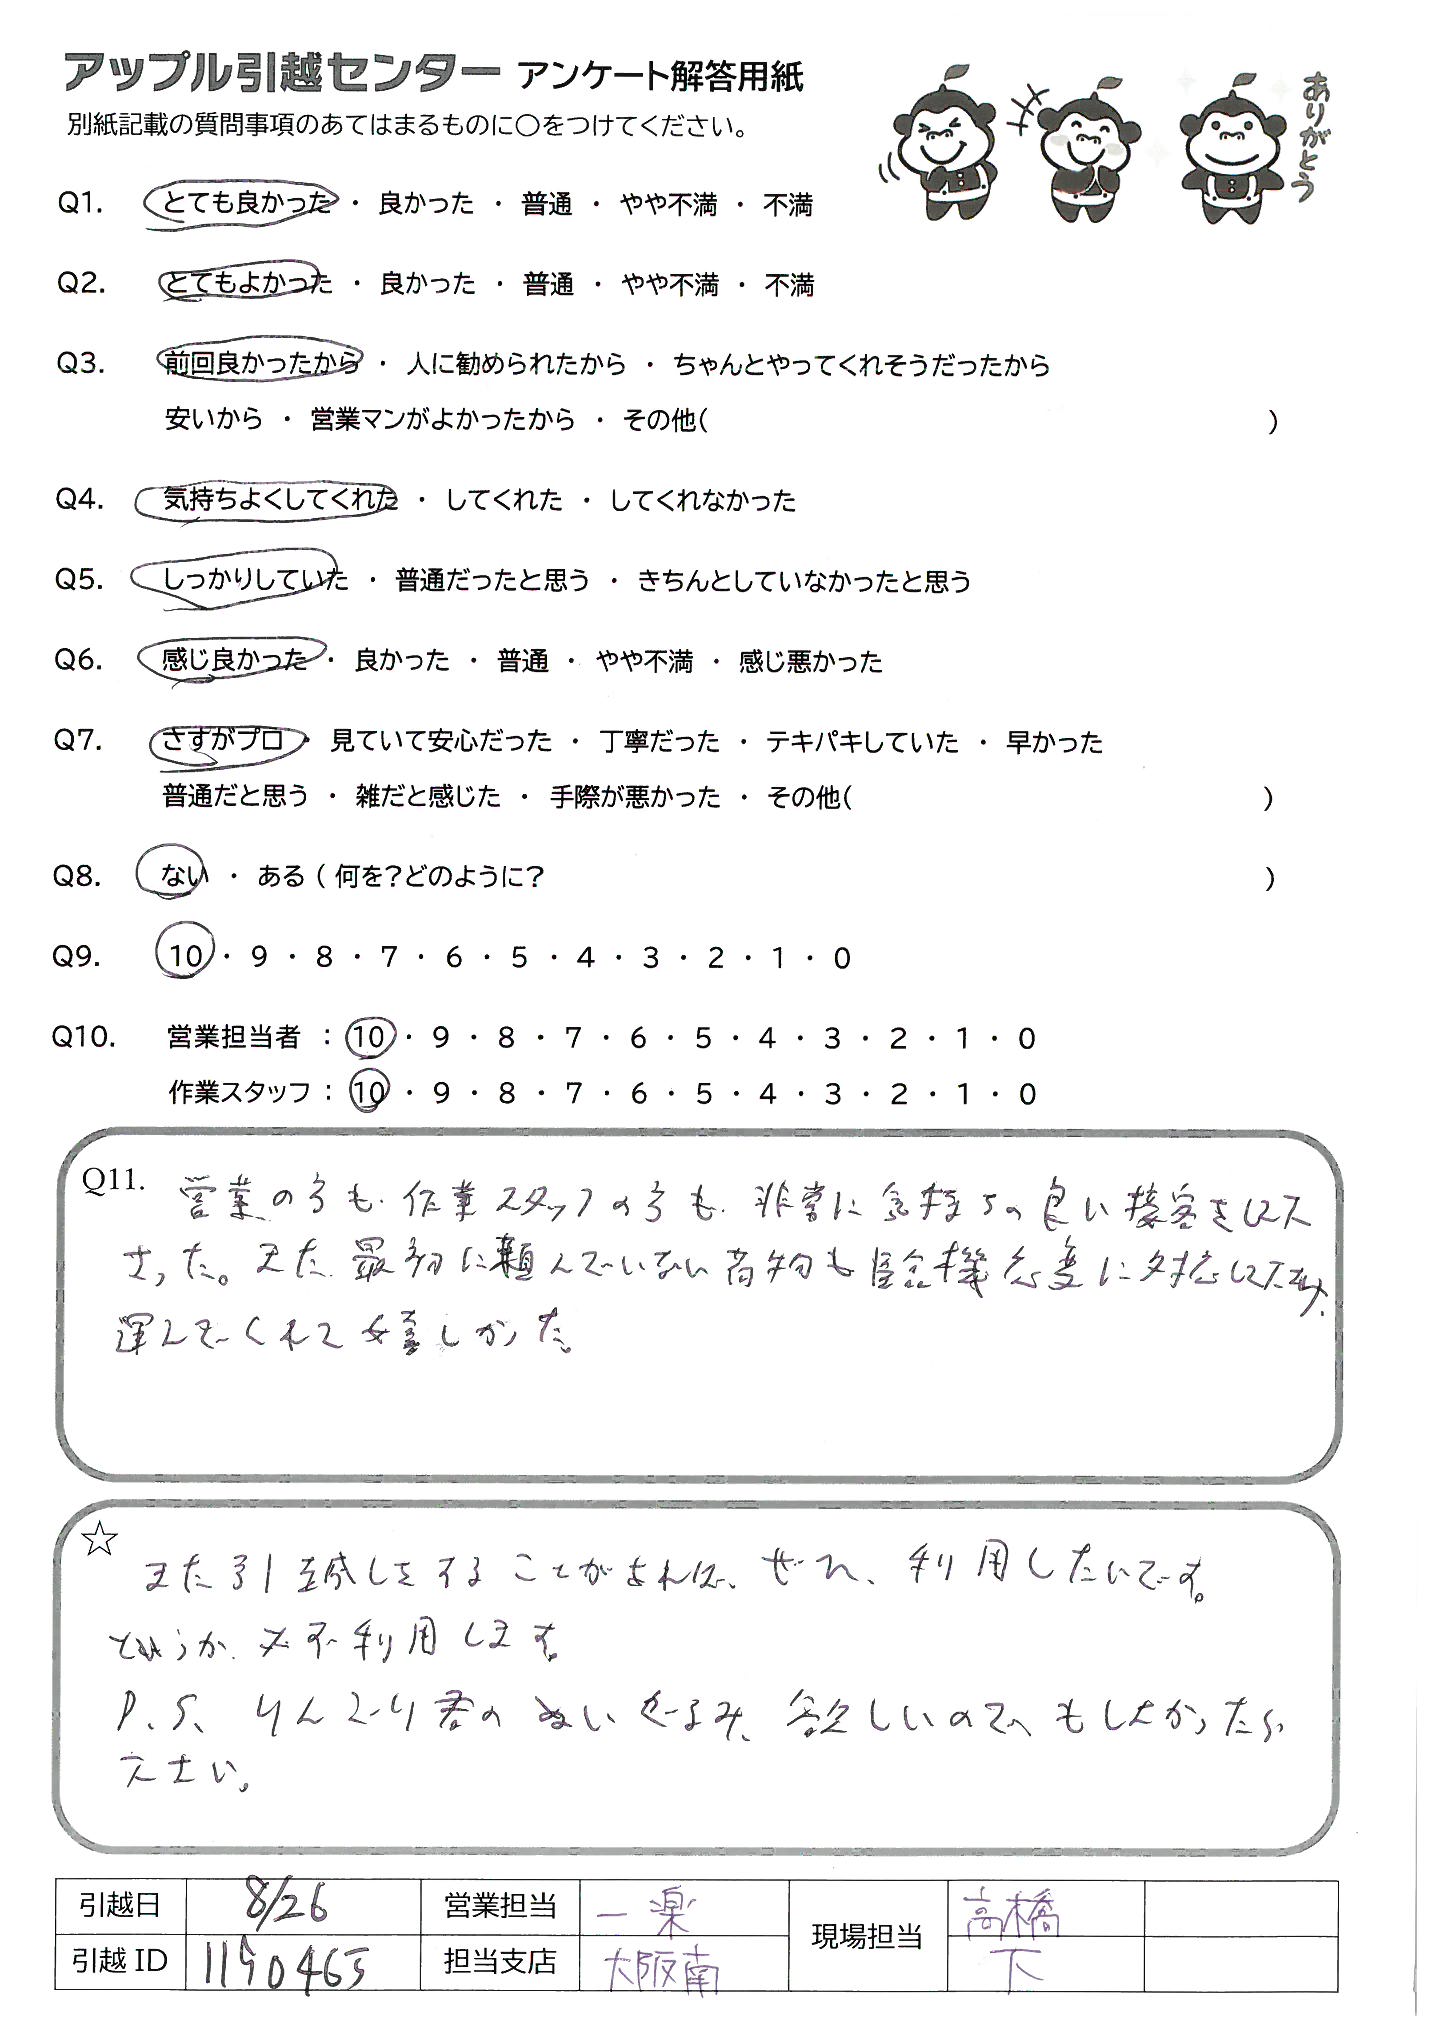 アップル引越センター アンケート解答用紙
別紙記載の質問事項のあてはまるものに○をつけてください。
ありがとう
Q1. とても良かった ・ 良かった ・ 普通 ・ やや不満 ・ 不満
Q2. とてもよかった ・ 良かった ・ 普通 ・ やや不満 ・ 不満
Q3. 前回良かったから ・ 人に勧められたから ・ ちゃんとやってくれそうだったから
安いから ・ 営業マンがよかったから ・ その他( )
Q4. 気持ちよくしてくれた ・ してくれた ・ してくれなかった
Q5. しっかりしていた ・ 普通だったと思う ・ きちんとしていなかったと思う
Q6. 感じ良かった ・ 良かった ・ 普通 ・ やや不満 ・ 感じ悪かった
Q7. さすがプロ ・ 見ていて安心だった ・ 丁寧だった ・ テキパキしていた ・ 早かった
普通だと思う ・ 雑だと感じた ・ 手際が悪かった ・ その他( )
Q8. ない ・ ある ( 何を?どのように? )
Q9. 10 ・ 9 ・ 8 ・ 7 ・ 6 ・ 5 ・ 4 ・ 3 ・ 2 ・ 1 ・ 0
Q10. 営業担当者 : 10 ・ 9 ・ 8 ・ 7 ・ 6 ・ 5 ・ 4 ・ 3 ・ 2 ・ 1 ・ 0
作業スタッフ : 10 ・ 9 ・ 8 ・ 7 ・ 6 ・ 5 ・ 4 ・ 3 ・ 2 ・ 1 ・ 0
Q11. 営業の方も、作業スタッフの方も、非常に気持ちの良い接客をして下
さった。また、最初に頼んでいない荷物も臨機応変に対応して下さり、
運んでくれて嬉しかった。
☆ また引越しをすることがあれば、ぜひ、利用したいです。
というか、必ず利用します。
P.S. りんごり君のぬいぐるみ、欲しいので、もしよかったら
下さい。
引越日 8/26 営業担当 一楽 現場担当 高橋
引越 ID 1190465 担当支店 大阪南 下